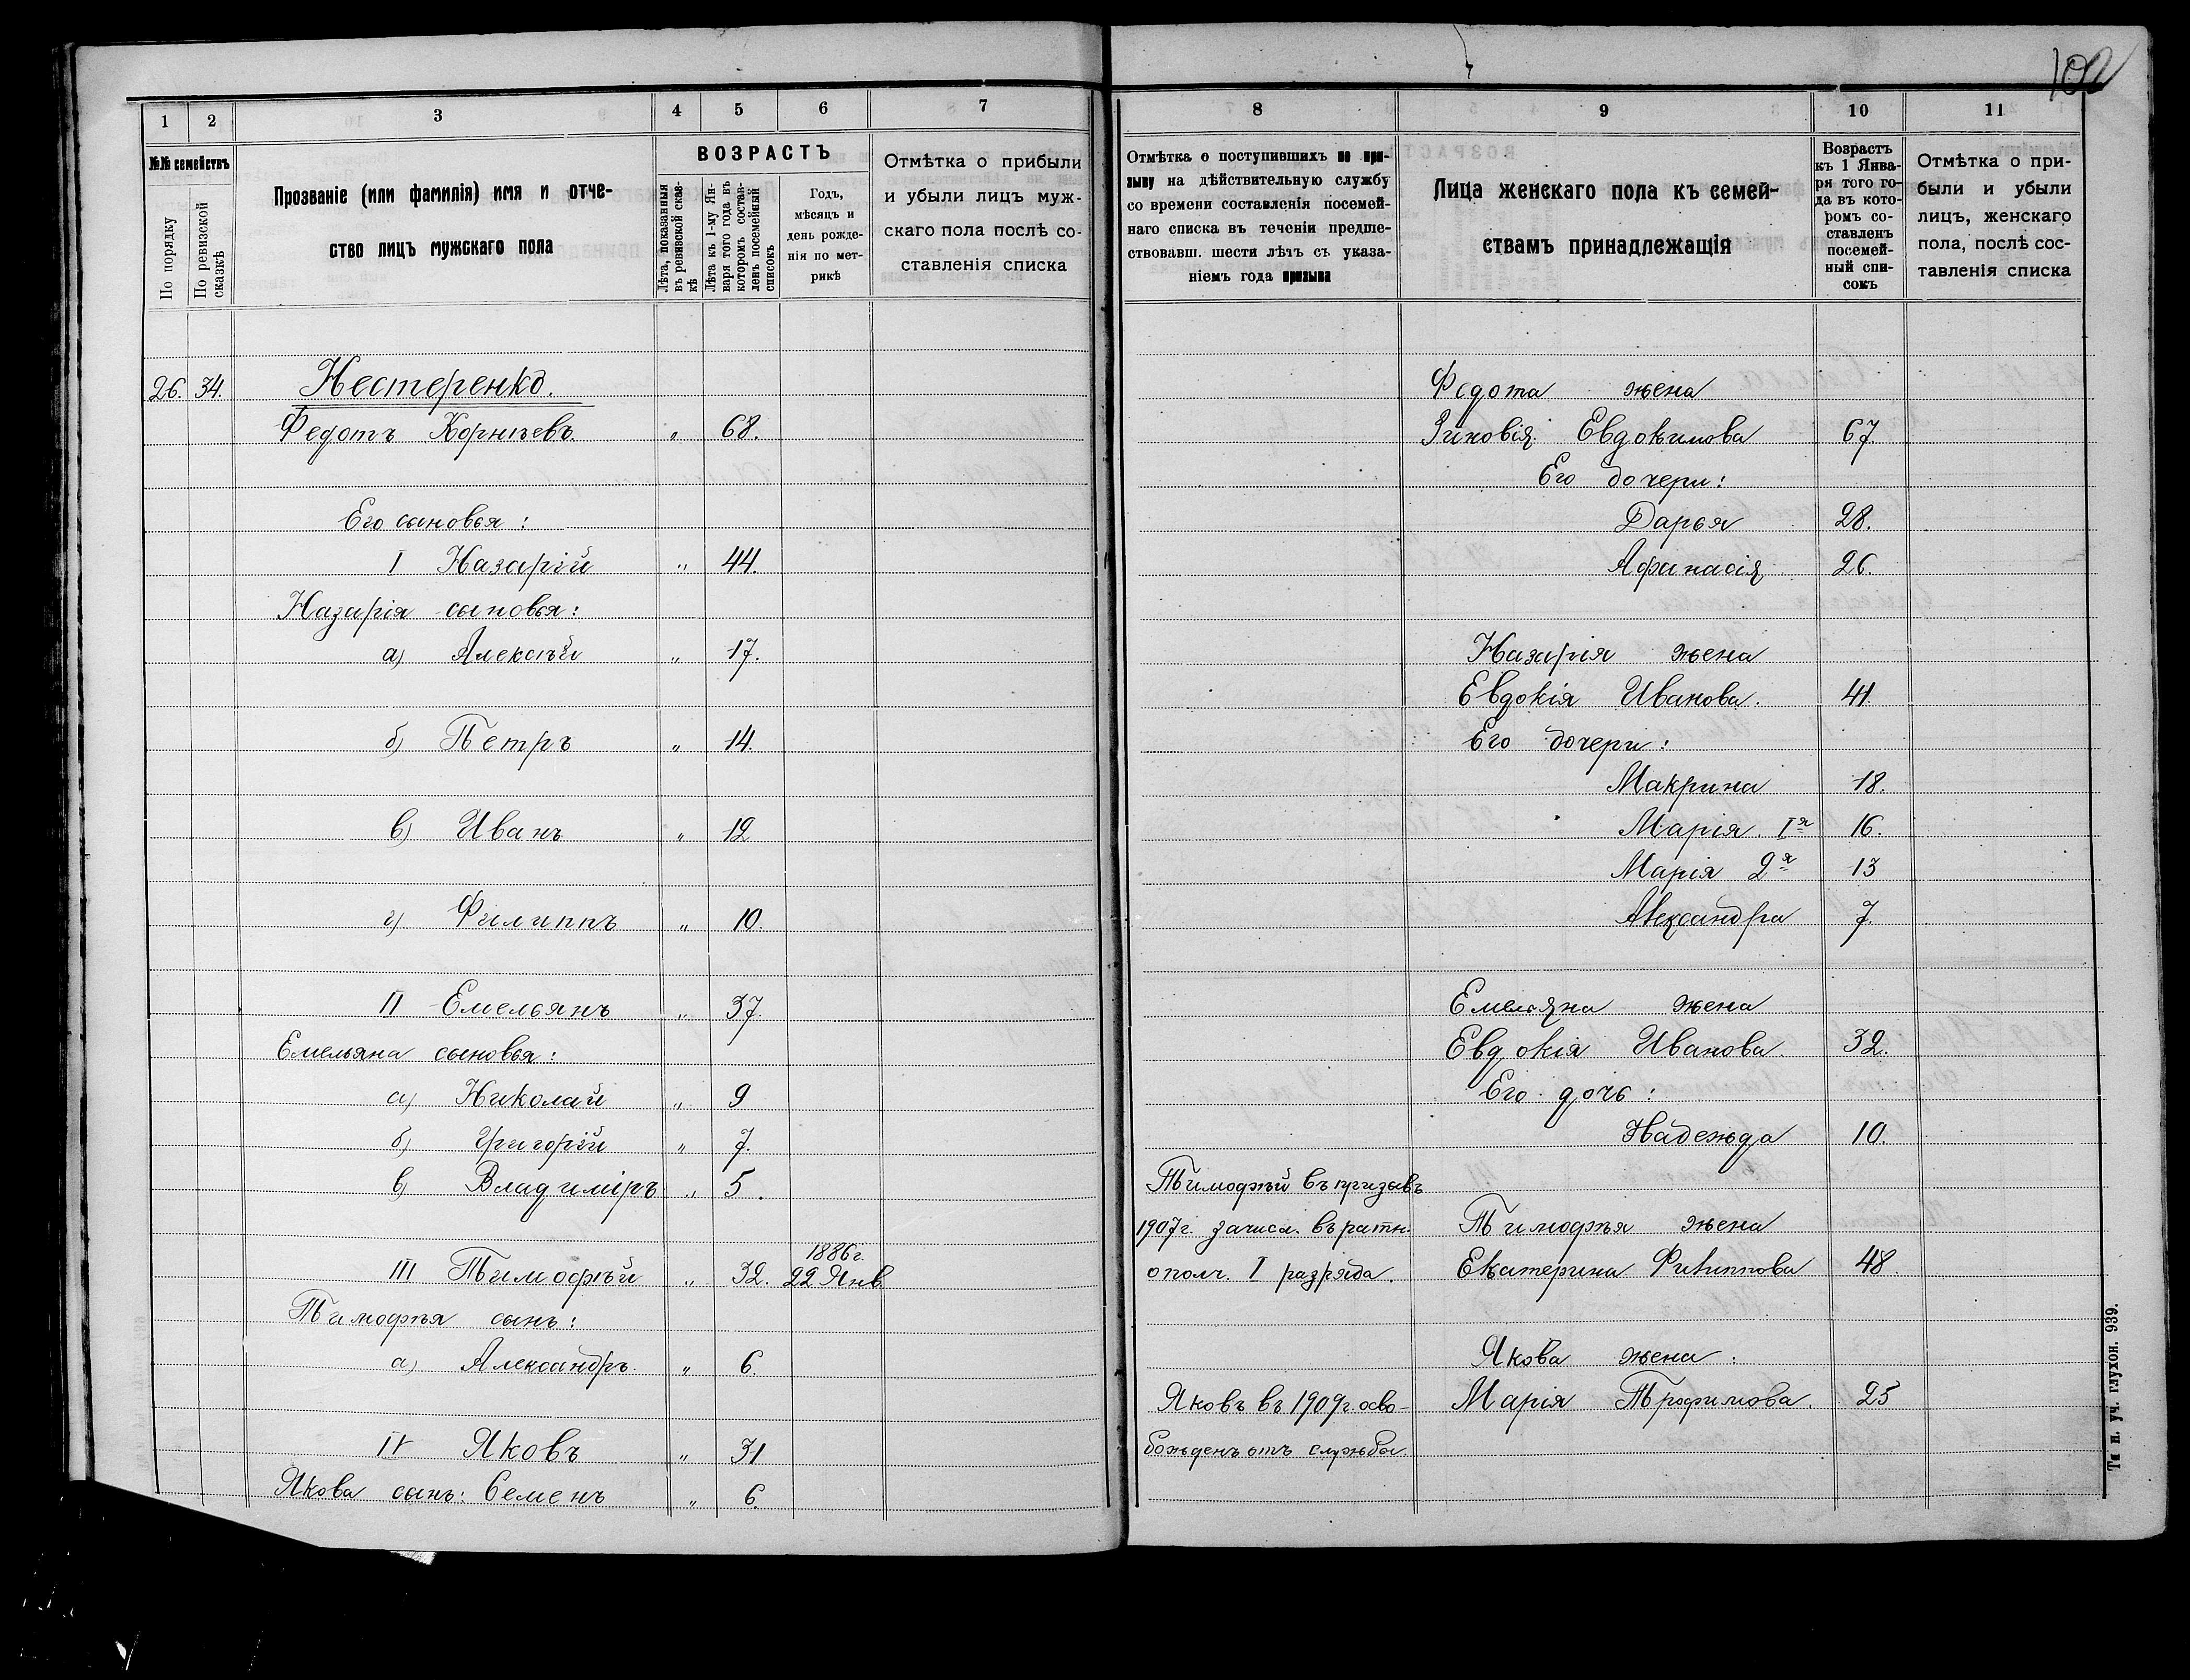 102
1 2 3 4 5 6 7
№№ семействъ
По порядку
По ревизской сказкѣ
Прозваніе (или фамилія) имя и отче-
ство лицъ мужскаго пола
ВОЗРАСТЪ
Лѣта, показанныя
въ ревизской сказ-
кѣ
Лѣта къ 1-му Ян-
варя того года въ
которомъ состав-
ленъ посемейный
списокъ
Годъ,
мѣсяцъ и
день рожде-
нія по мет-
рикѣ
Отмѣтка о прибыли
и убыли лицъ муж-
скаго пола послѣ со-
ставленія списка
26. 34. Нестеренко.
Федотъ Корнѣевъ. „ 68.
Его сыновья:
I Назарій „ 44.
Назарія сыновья:
а) Алексѣй „ 17.
б) Петръ „ 14.
в) Иванъ „ 12
г) Филиппъ „ 10.
II Емельянъ „ 37.
Емельяна сыновья:
а) Николай „ 9
б) Григорій „ 7.
в) Владиміръ „ 5.
1886 г.
III Тимофѣй „ 32. 22 Янв
Тимофѣя сынъ:
а) Александръ „ 6.
IV Яковъ „ 31
Якова сынъ: Семенъ „ 6.
8 9 10 11
Отмѣтка о поступившихъ по при-
зыву на дѣйствительную службу
со времени составленія посемей-
наго списка въ теченіи предше-
ствовавш. шести лѣтъ съ указа-
ніемъ года призыва
Лица женскаго пола къ семей-
ствамъ принадлежащія
Возрастъ
къ 1 Янва-
ря того го-
да въ кото-
ромъ со-
ставленъ
посемей-
ный спи-
сокъ
Отмѣтка о при-
были и убыли
лицъ, женскаго
пола, послѣ сос-
тавленія списка
Федота жена
Зиновія Евдокимова 67
Его дочери:
Дарья 28.
Афанасія 26.
Назарія жена
Евдокія Иванова. 41.
Его дочери:
Макрина 18.
Марія I я 16.
Марія 2 я 13
Александра 7.
Емельяна жена
Евдокія Иванова. 32.
Его дочь:
Надежда 10.
Тимофѣй въ призывъ
1907 г. зачисл. въ ратн. Тимофѣя жена
ополч. I разряда. Екатерина Филиппова 48.
Якова жена:
Яковъ въ 1909 г. осво- Марія Трофимова. 25
божденъ отъ службы.
Тип. уч. глухон. 939.